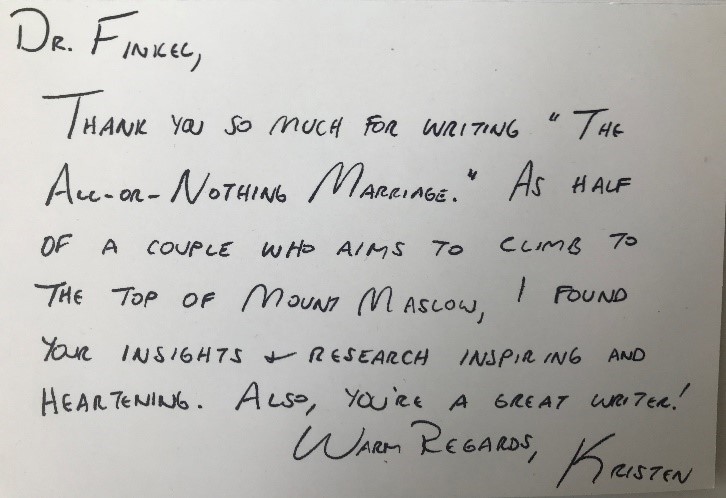 Dr. Finkel,
Thank you so much for writing "The
All-or-Nothing Marriage." As half
of a couple who aims to climb to
the top of Mount Maslow, I found
your insights & research inspiring and
heartening. Also, you're a great writer!
Warm Regards, Kristen